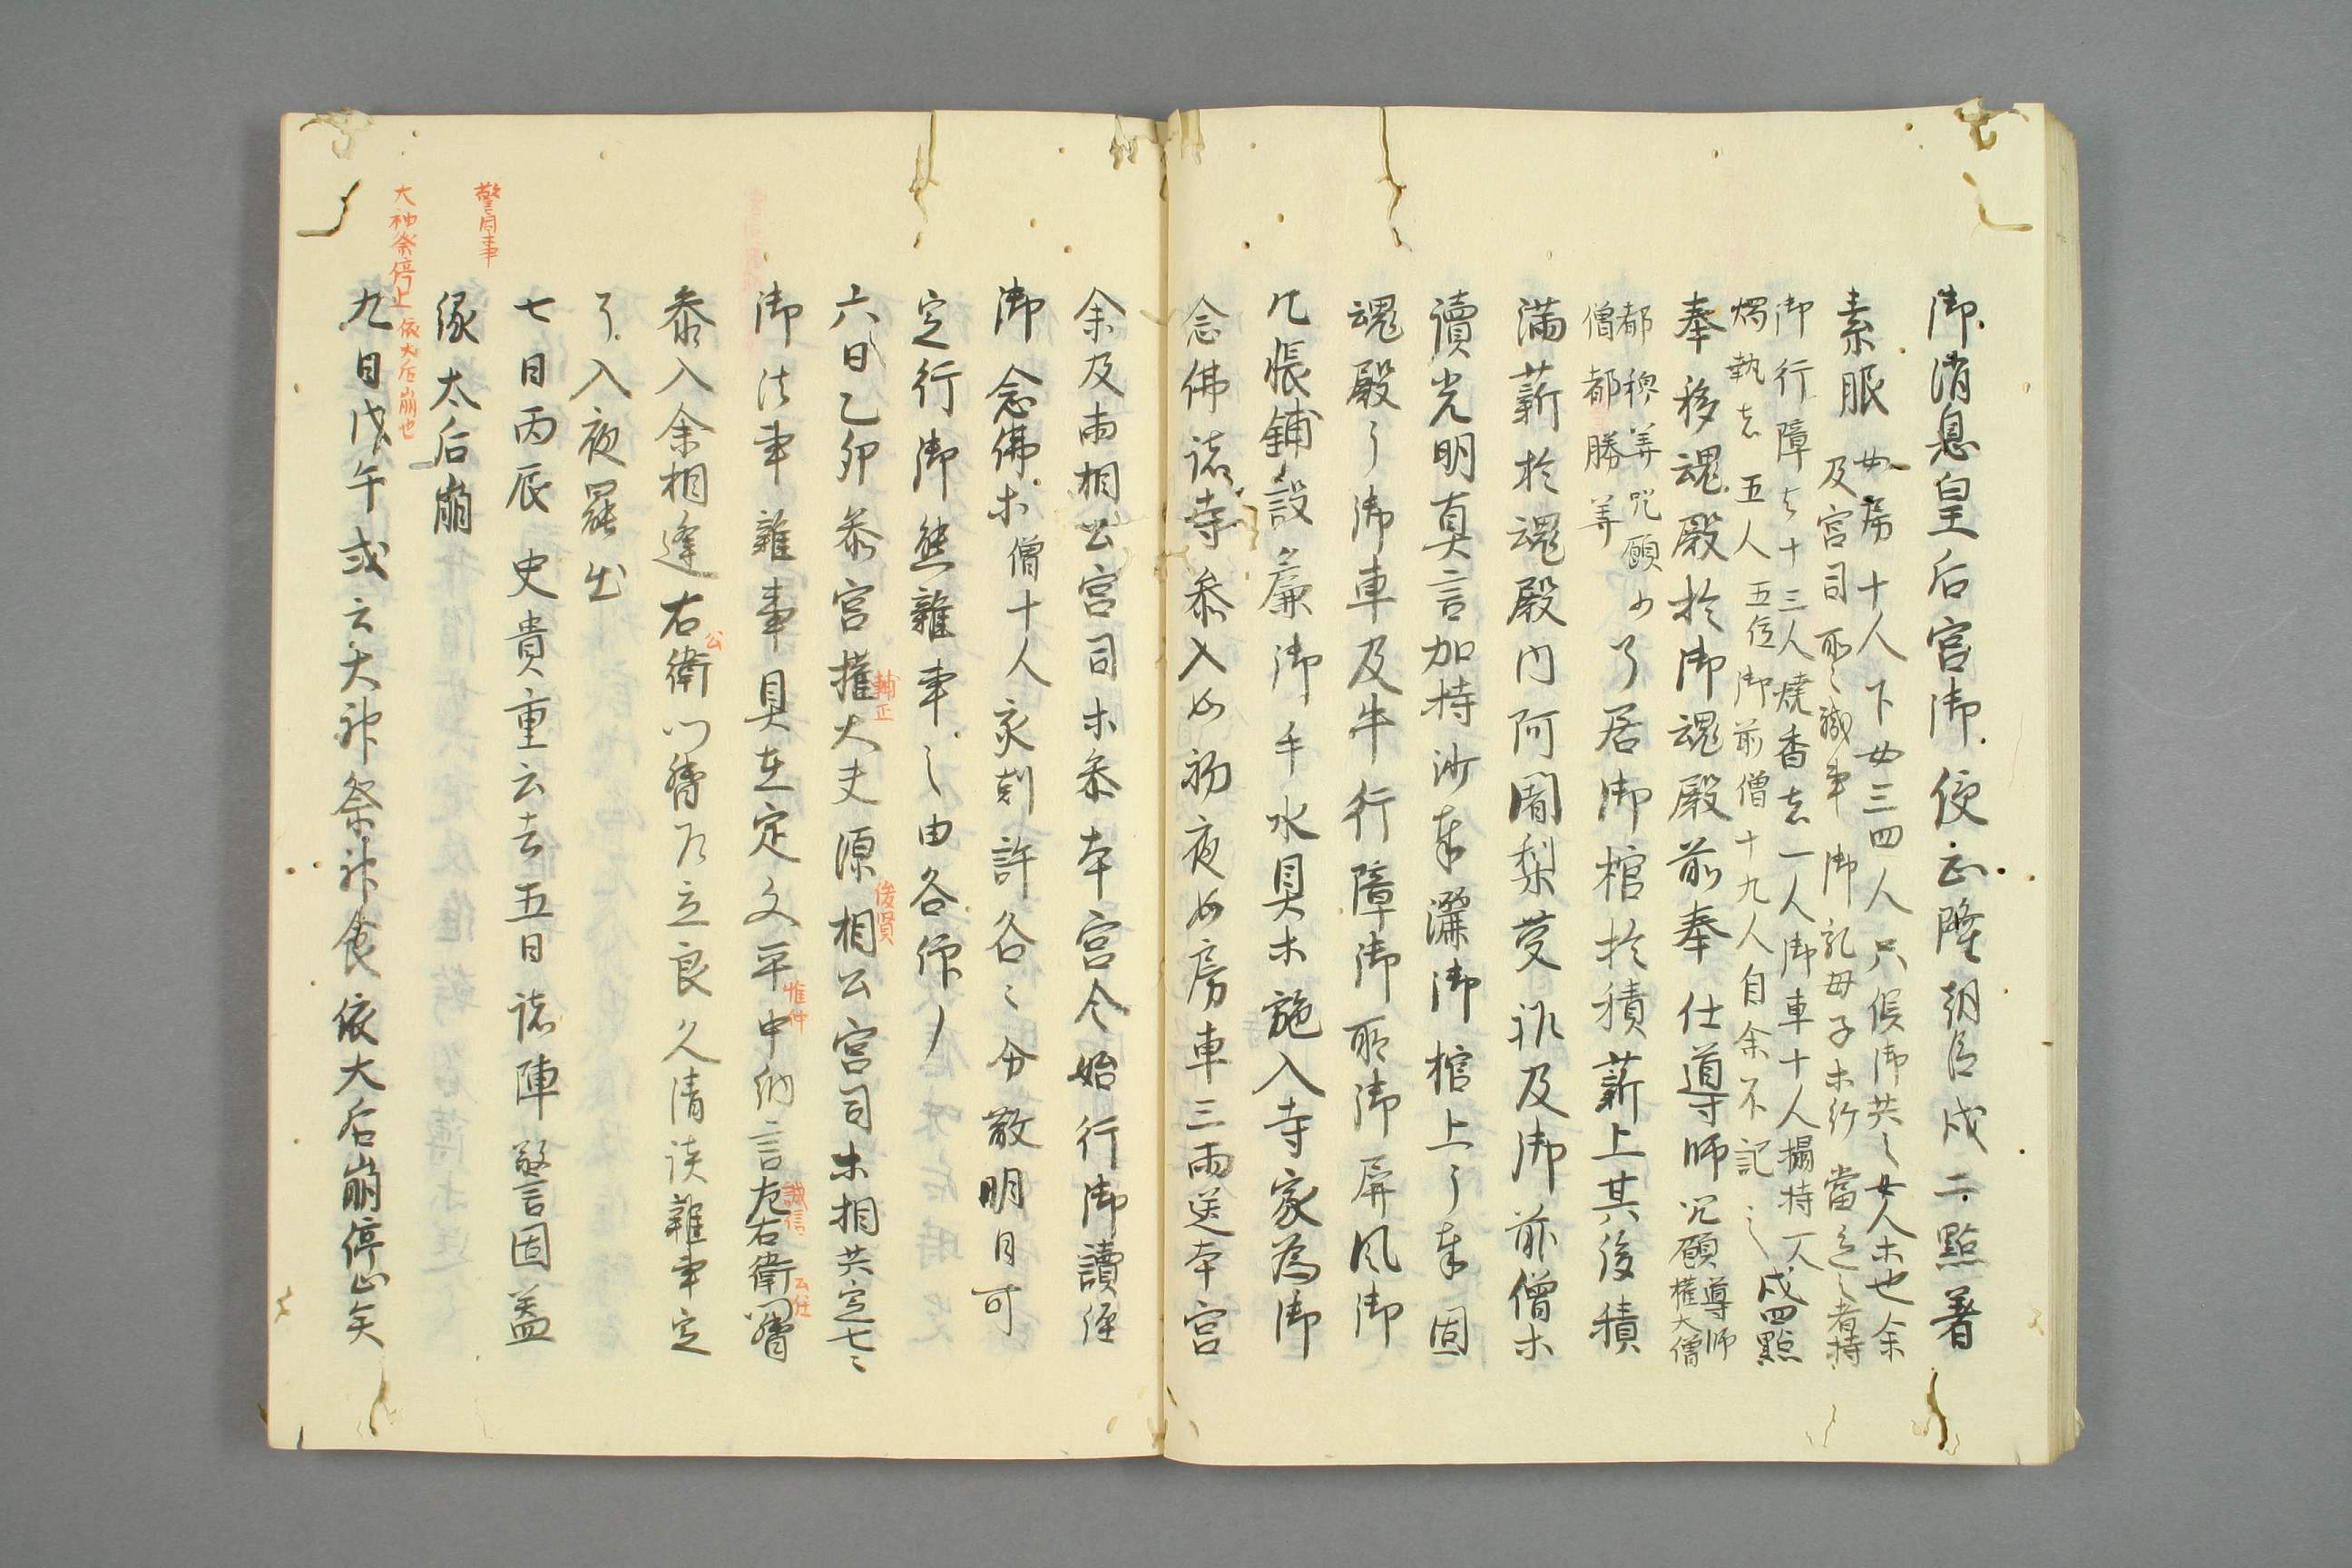 御消息皇后宮御使正隆朝臣戌二點著
素服女房十人下女三四人只候御共之女人木也余
及宮司所々職事御乳母子木行當色之者持
御行障者十三人燒香者一人御車十人揭持一人戌四點
燭執者五人五位御前僧十九人自余不記之
奉移魂殿於御魂殿前奉仕導師咒願導師
權大僧
都穆筭咒願少
僧都勝筭了居御棺於積薪上其後積
滿薪於魂殿內阿闍梨慶祚及御前僧木
讀光明真言加持沙奉灑御棺上了奉固
魂殿了御車及牛行障御所御屏風御
几帳鋪設簾御手水具木施入寺家為御
念佛諸寺參入如初夜女房車三兩送本宮
余及兩相公宮司木參本宮今始行御讀經
御念佛木僧十人亥剋許各々分散明日可
定行御態雜事之由各依丿
六日乙卯參宮權大夫源相公宮司木相共定七々
輔正
俊賢
御法事雜事具在定文平中納言左右衛門督
惟仲
誠信
公任
參入余相逢右衛門督乃立良久清談雜事定
公
了入夜罷出
七日丙辰史貴重云去五日諸陣警固蓋
警固事
緣太后崩
大神祭停止依大后崩也
九日戊午或云大神祭神食依大后崩停止矣